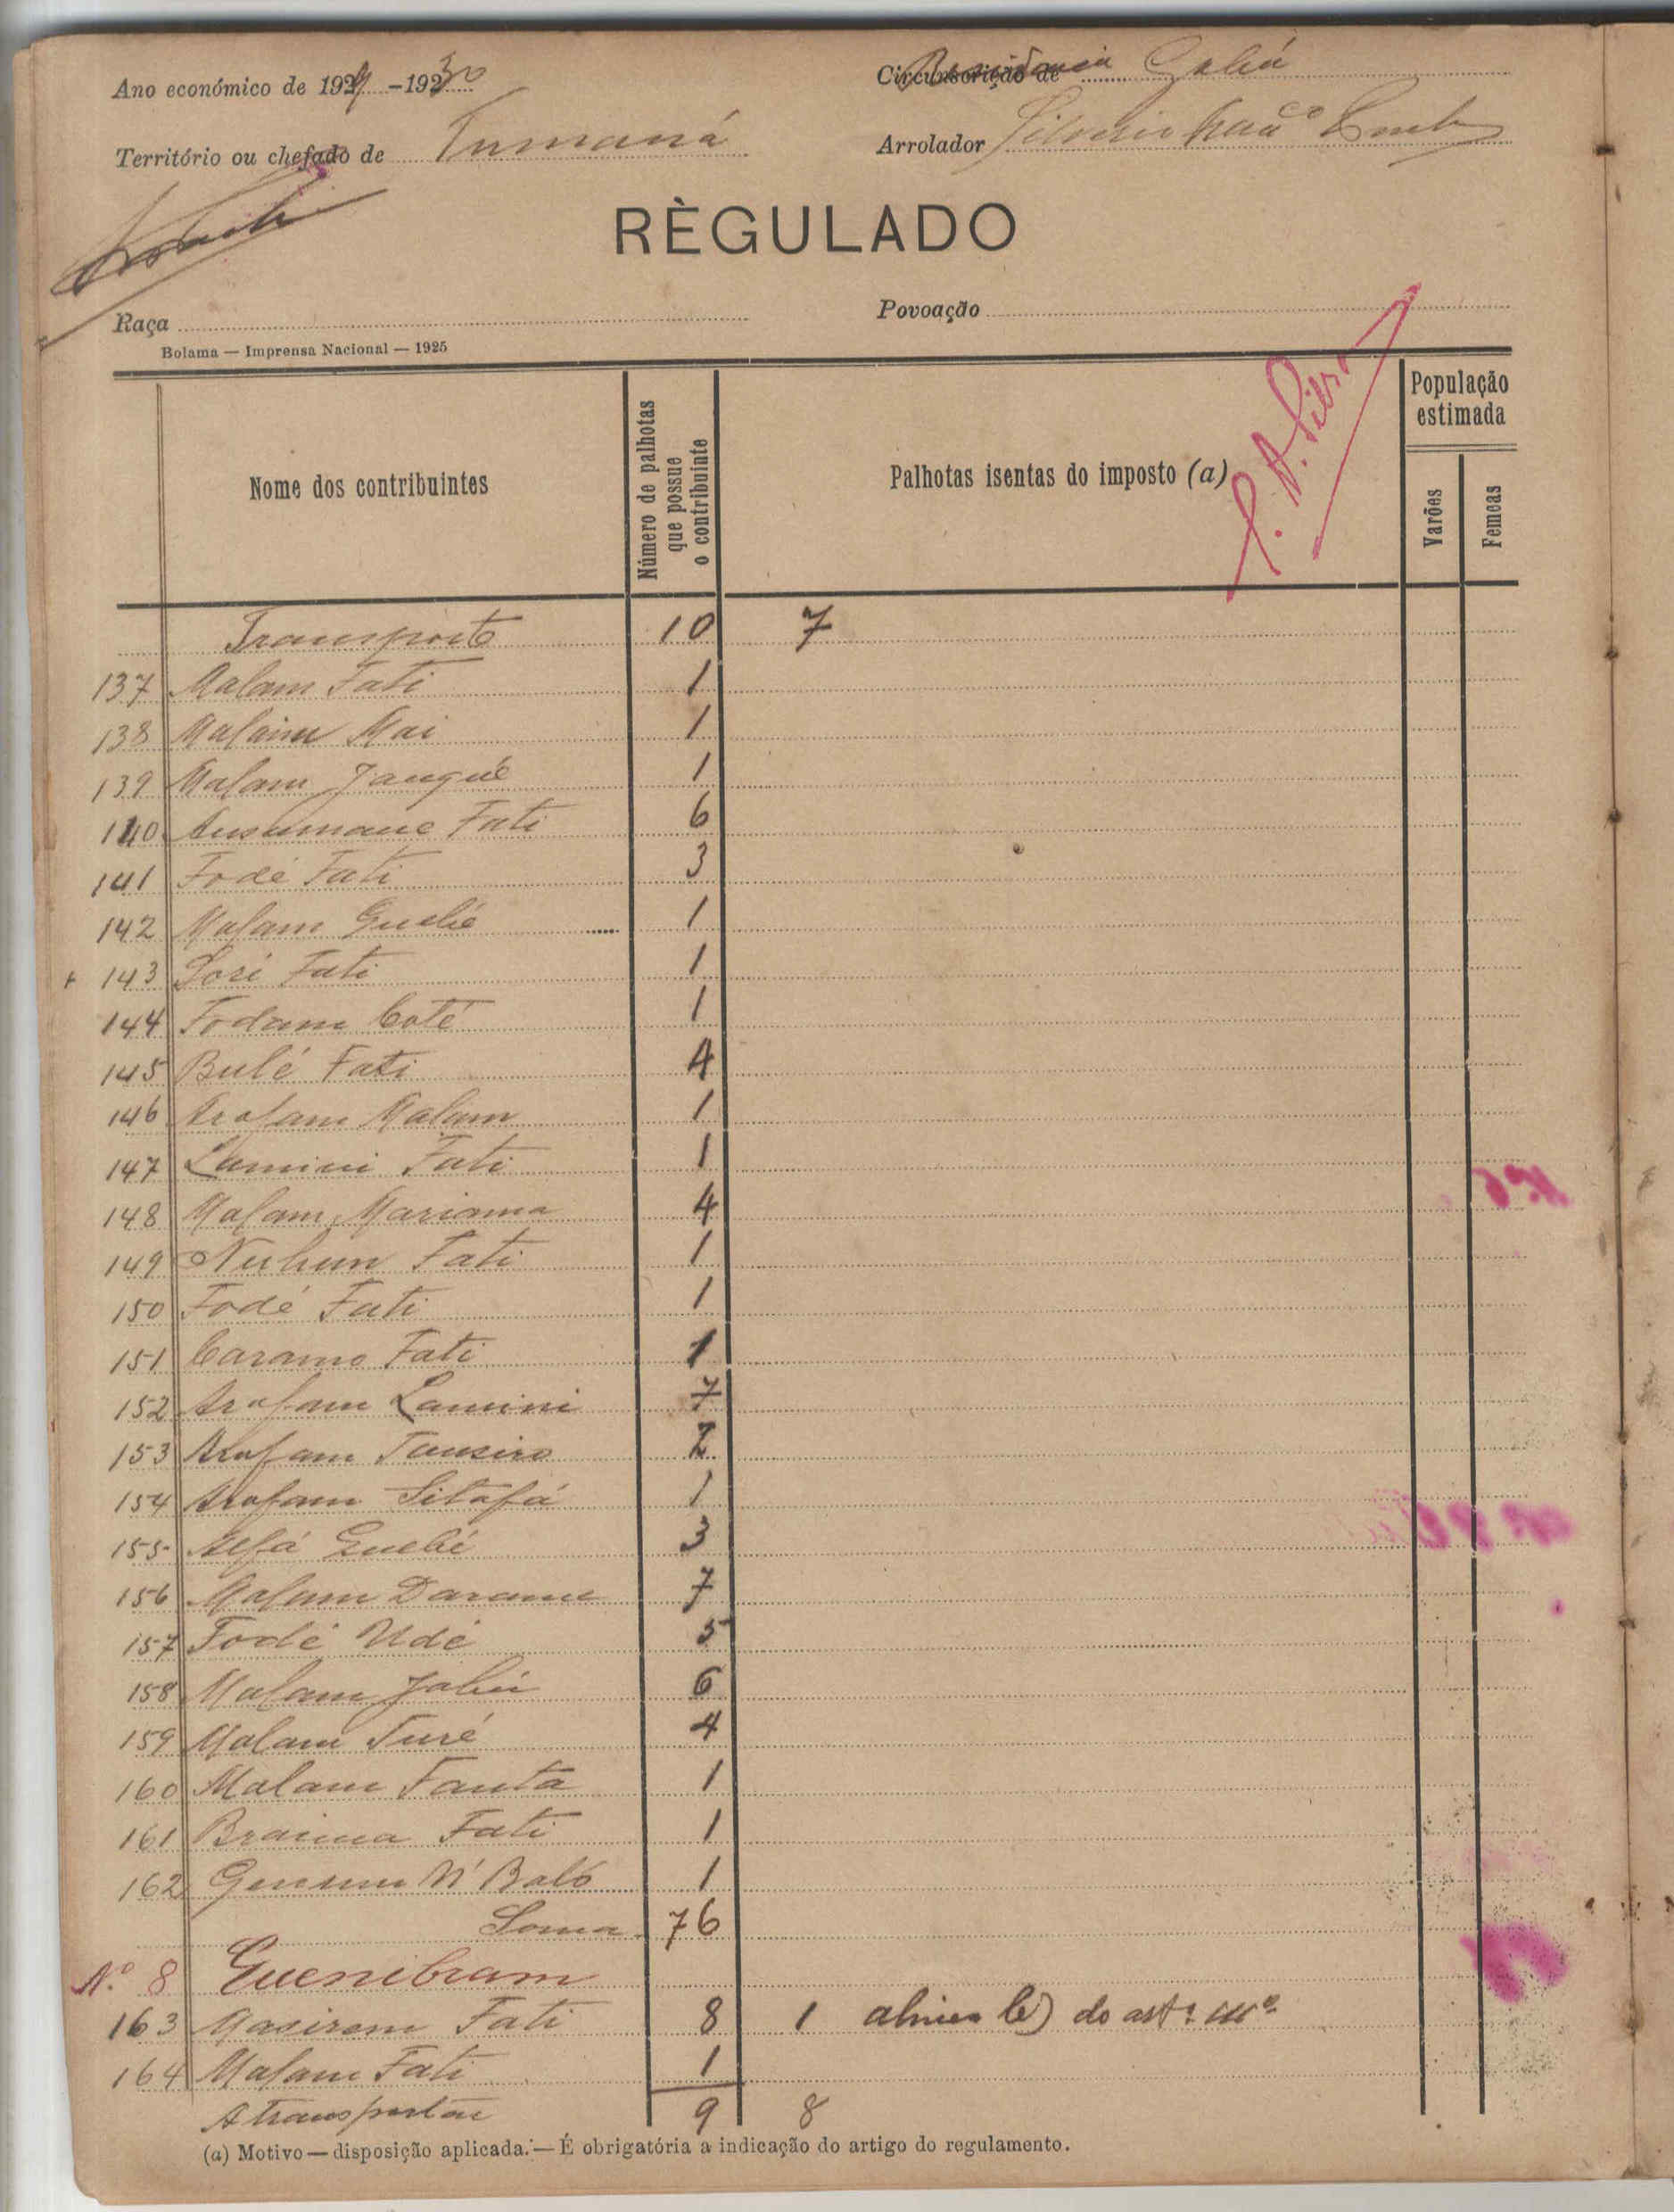 Ano económico de 1929 -1930
Circunscrição de Residencia Gabú
Território ou chefado de Tumaná
Arrolador
RÈGULADO
Raça
Povoação
Bolama — Imprensa Nacional — 1925
Nome dos contribuintes
Número de palhotas que possue o contribuinte
Palhotas isentas do imposto (a)
População estimada
Varões
Femeas
Transporte 10 7
137 Malam Fati 1
138 Malam Mai 1
139 Malam Janqué 1
140 Ansumane Fati 6
141 Fodé Fati 3
142 Malam Guebé 1
143 Sori Fati 1
144 Fodam Coté 1
145 Bulé Fati 4
146 Arafam Malam 1
147 Lamini Fati 1
148 Malam Mariama 4
149 Nuhum Fati 1
150 Fodé Fati 1
151 Caramo Fati 1
152 Arafam Lamini 7
153 Arafam Tunsiro 2
154 Arafam Sitafá 1
155 Alfá Guebé 3
156 Malam Darame 7
157 Fodé Udé 5
158 Malam Jabú 6
159 Malam Turé 4
160 Malam Fanta 1
161 Braima Fati 1
162 N'Baló 1
Soma 76
Nº 8 Guenibram
163 Masirem Fati 8 1 alinea b) do artº
164 Malam Fati 1
A transportar 9 8
(a) Motivo — disposição aplicada. — É obrigatória a indicação do artigo do regulamento.